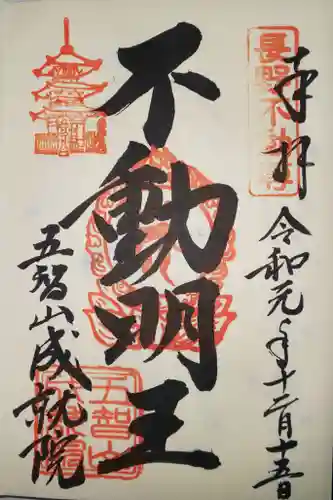 奉拝
令和元年十二月十五日
不動明王
五智山成就院
五智山